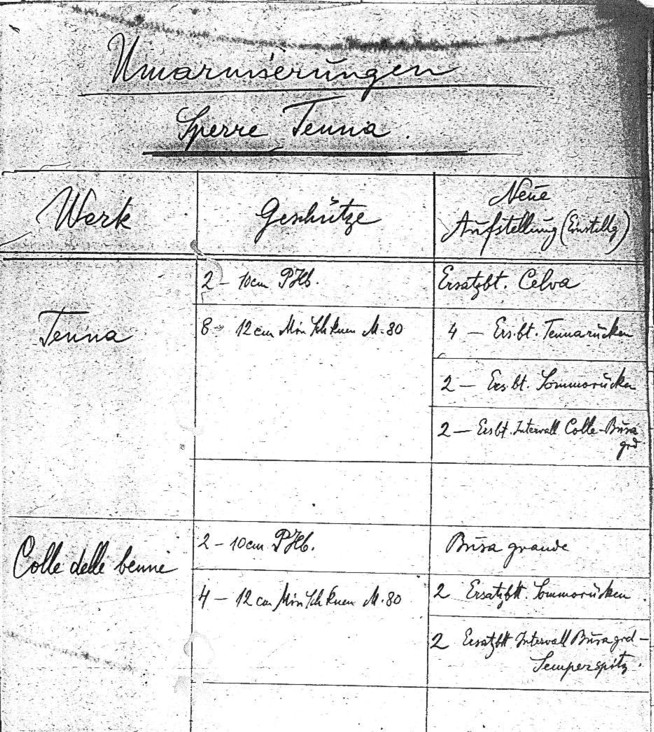 Umarmierungen
Sperre Tenna.
Werk
Geschütze
Neue
Aufstellung (Einstellg)
Tenna
2 – 10cm PHb.
Ersatzbt. Celva
8 – 12cm Min Sch Knen M. 80
4 – Ers.bt. Tennarücken
2 – Ers.bt. Sommorücken
2 – Ersbt. Intervall Colle-Busa
grd
Colle delle benne
2 – 10cm PHb.
Busa grande
4 – 12cm Min Sch Knen M. 80
2 Ersatzbtt. Sommorücken
2 Ersatzbtt Intervall Busa grd –
Semperspitz.